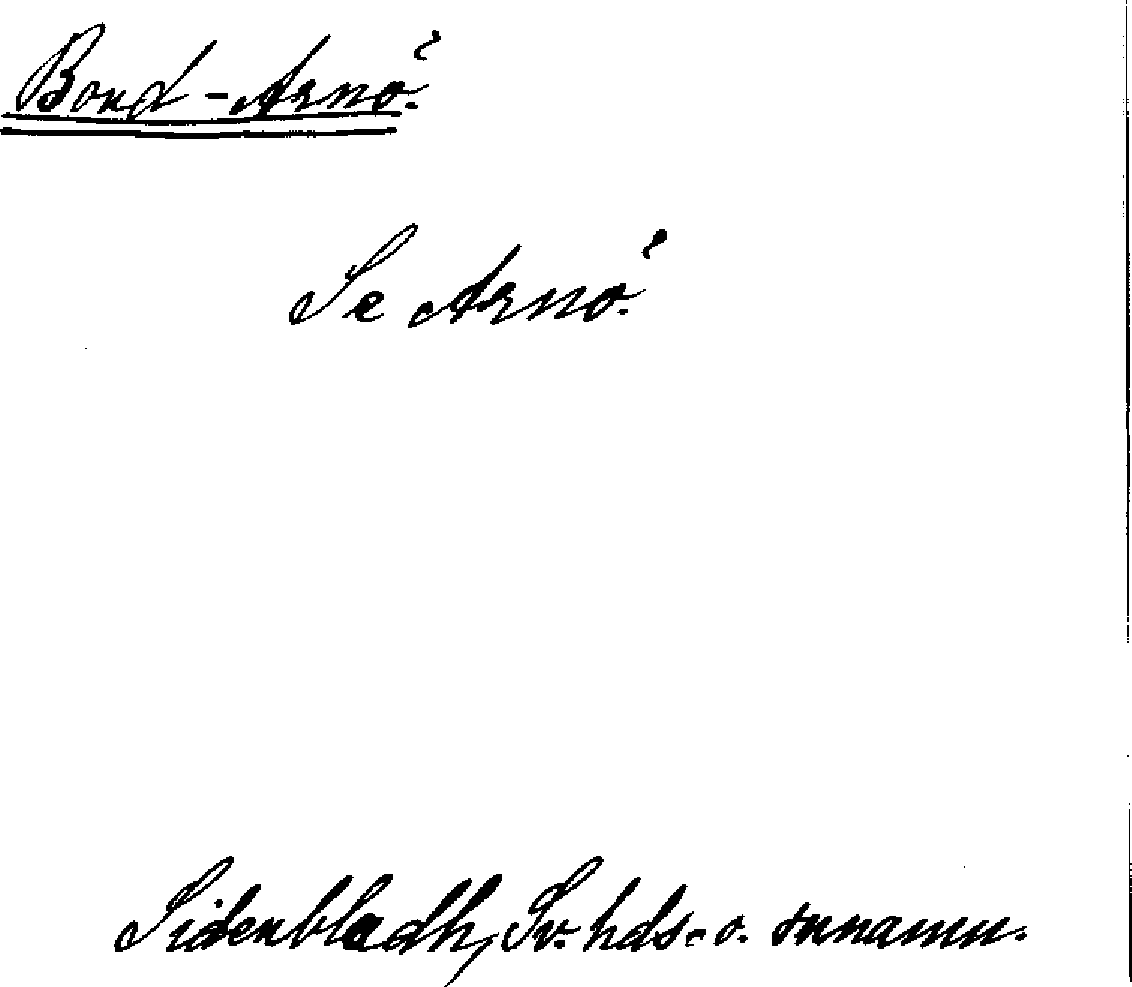 Bond-Arnö.
Se Arnö.
Sidenbladh, Sv. hds.- o. snnamn.